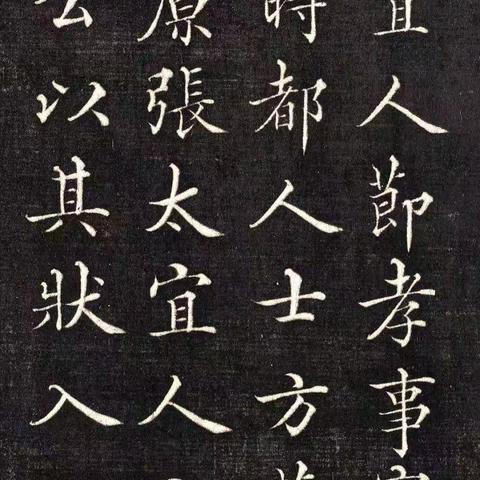 宜人節孝事
時都人士方
原張太宜人
以其狀入